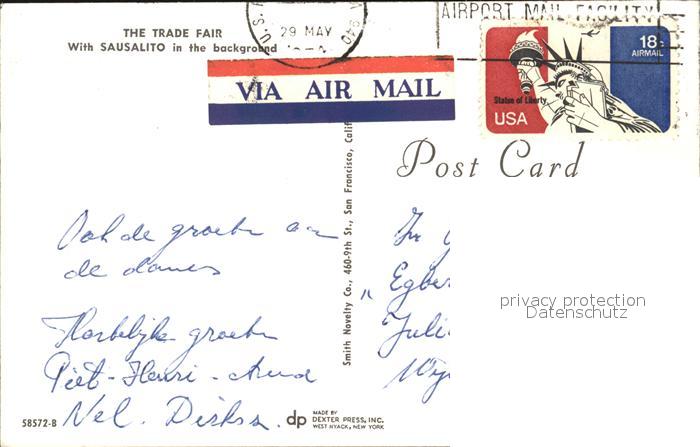 THE TRADE FAIR
With SAUSALITO in the background
U.S.
29 MAY
940
AIRPORT MAIL FACILITY
VIA AIR MAIL
18c
AIRMAIL
Statue of Liberty
USA
Post Card
Smith Novelty Co., 460-9th St., San Francisco, Calif
Ook de groeten aan
de dames
Hartelijke groeten
Piet - Henri -
Nel.
"Egber
Juli
privacy protection
Datenschutz
58572-B
dp MADE BY
DEXTER PRESS, INC.
WEST NYACK, NEW YORK